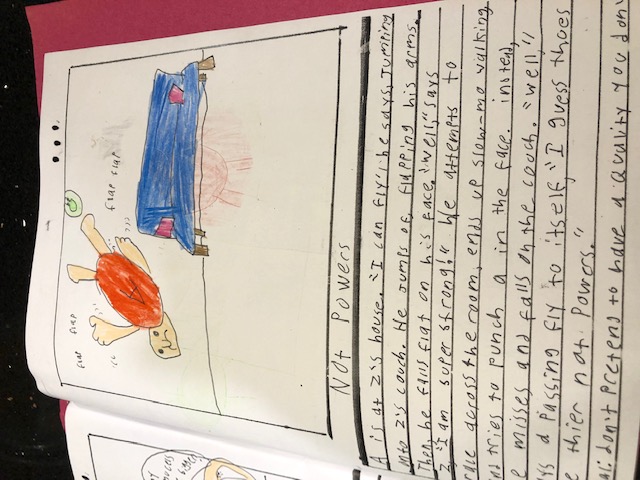 flap flap
flap flap
A
Not Powers
A is at Z's house. "I can fly", he says, Jumping
onto Z's couch. He Jumps of, flapping his arms.
Then, he falls flat on his face. "Well," says
Z, "I am super strong!" He attempts to
across the room, ends up slow-mo walking
tries to punch a in the face. insted,
misses and falls on the couch. "well"!
a passing fly to itself, "I guess thoes
thier not powers."
don't pretend to have a quality you don